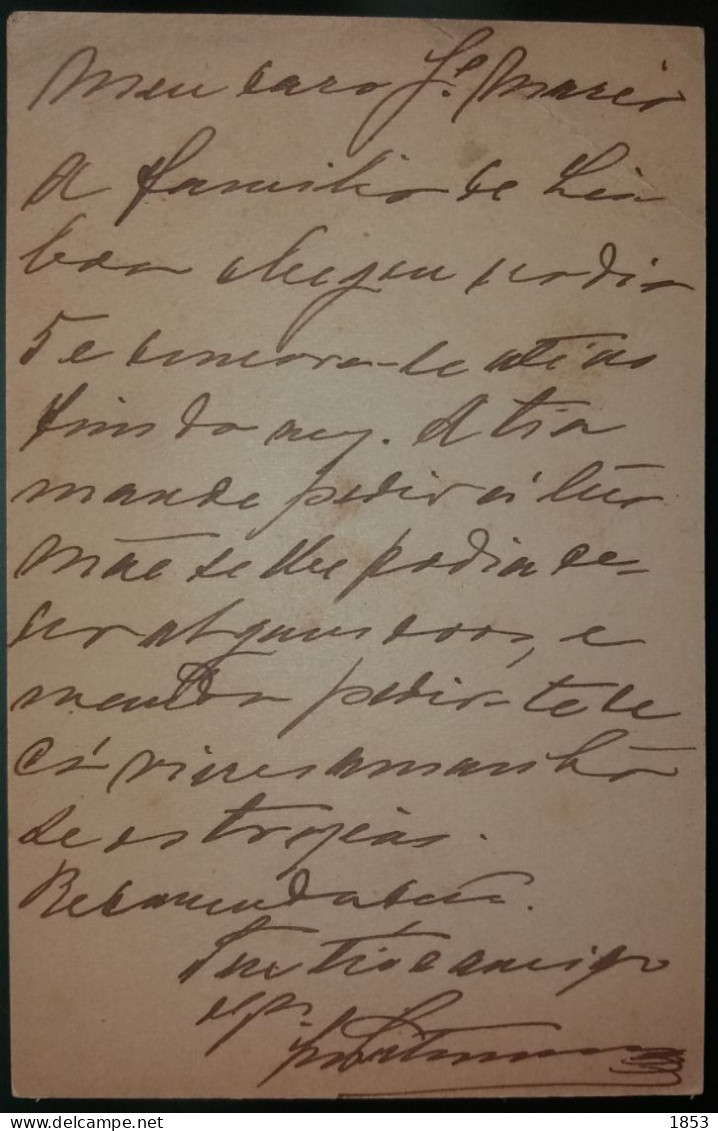 Meu caro Jé. Mario
A familia de Lis
boa chegou no dia
5 e demora-se até aos
fins do mez. A tia
manda pedir á tua
mãe se lhe podia ce-
der alguns ovos, e
manda pedir-te de
cá vires amanhã
se os trazias.
Recomendações.
Teu tio e amigo